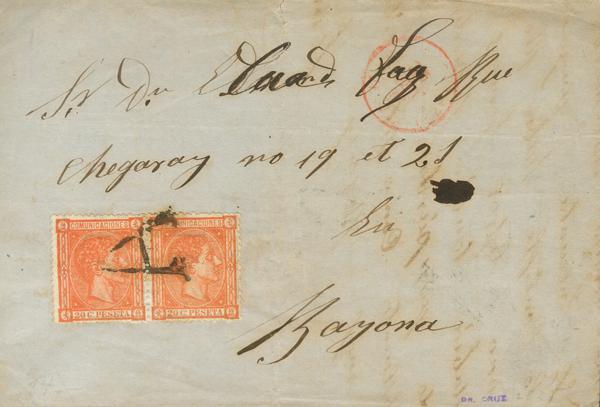 Sr Dn Eduard Rue
Chegaray no 19 et 21
En
Bayona
COMUNICACIONES COMUNICACIONES
20 C. PESETA 20 C. PESETA
DR. CRUZ